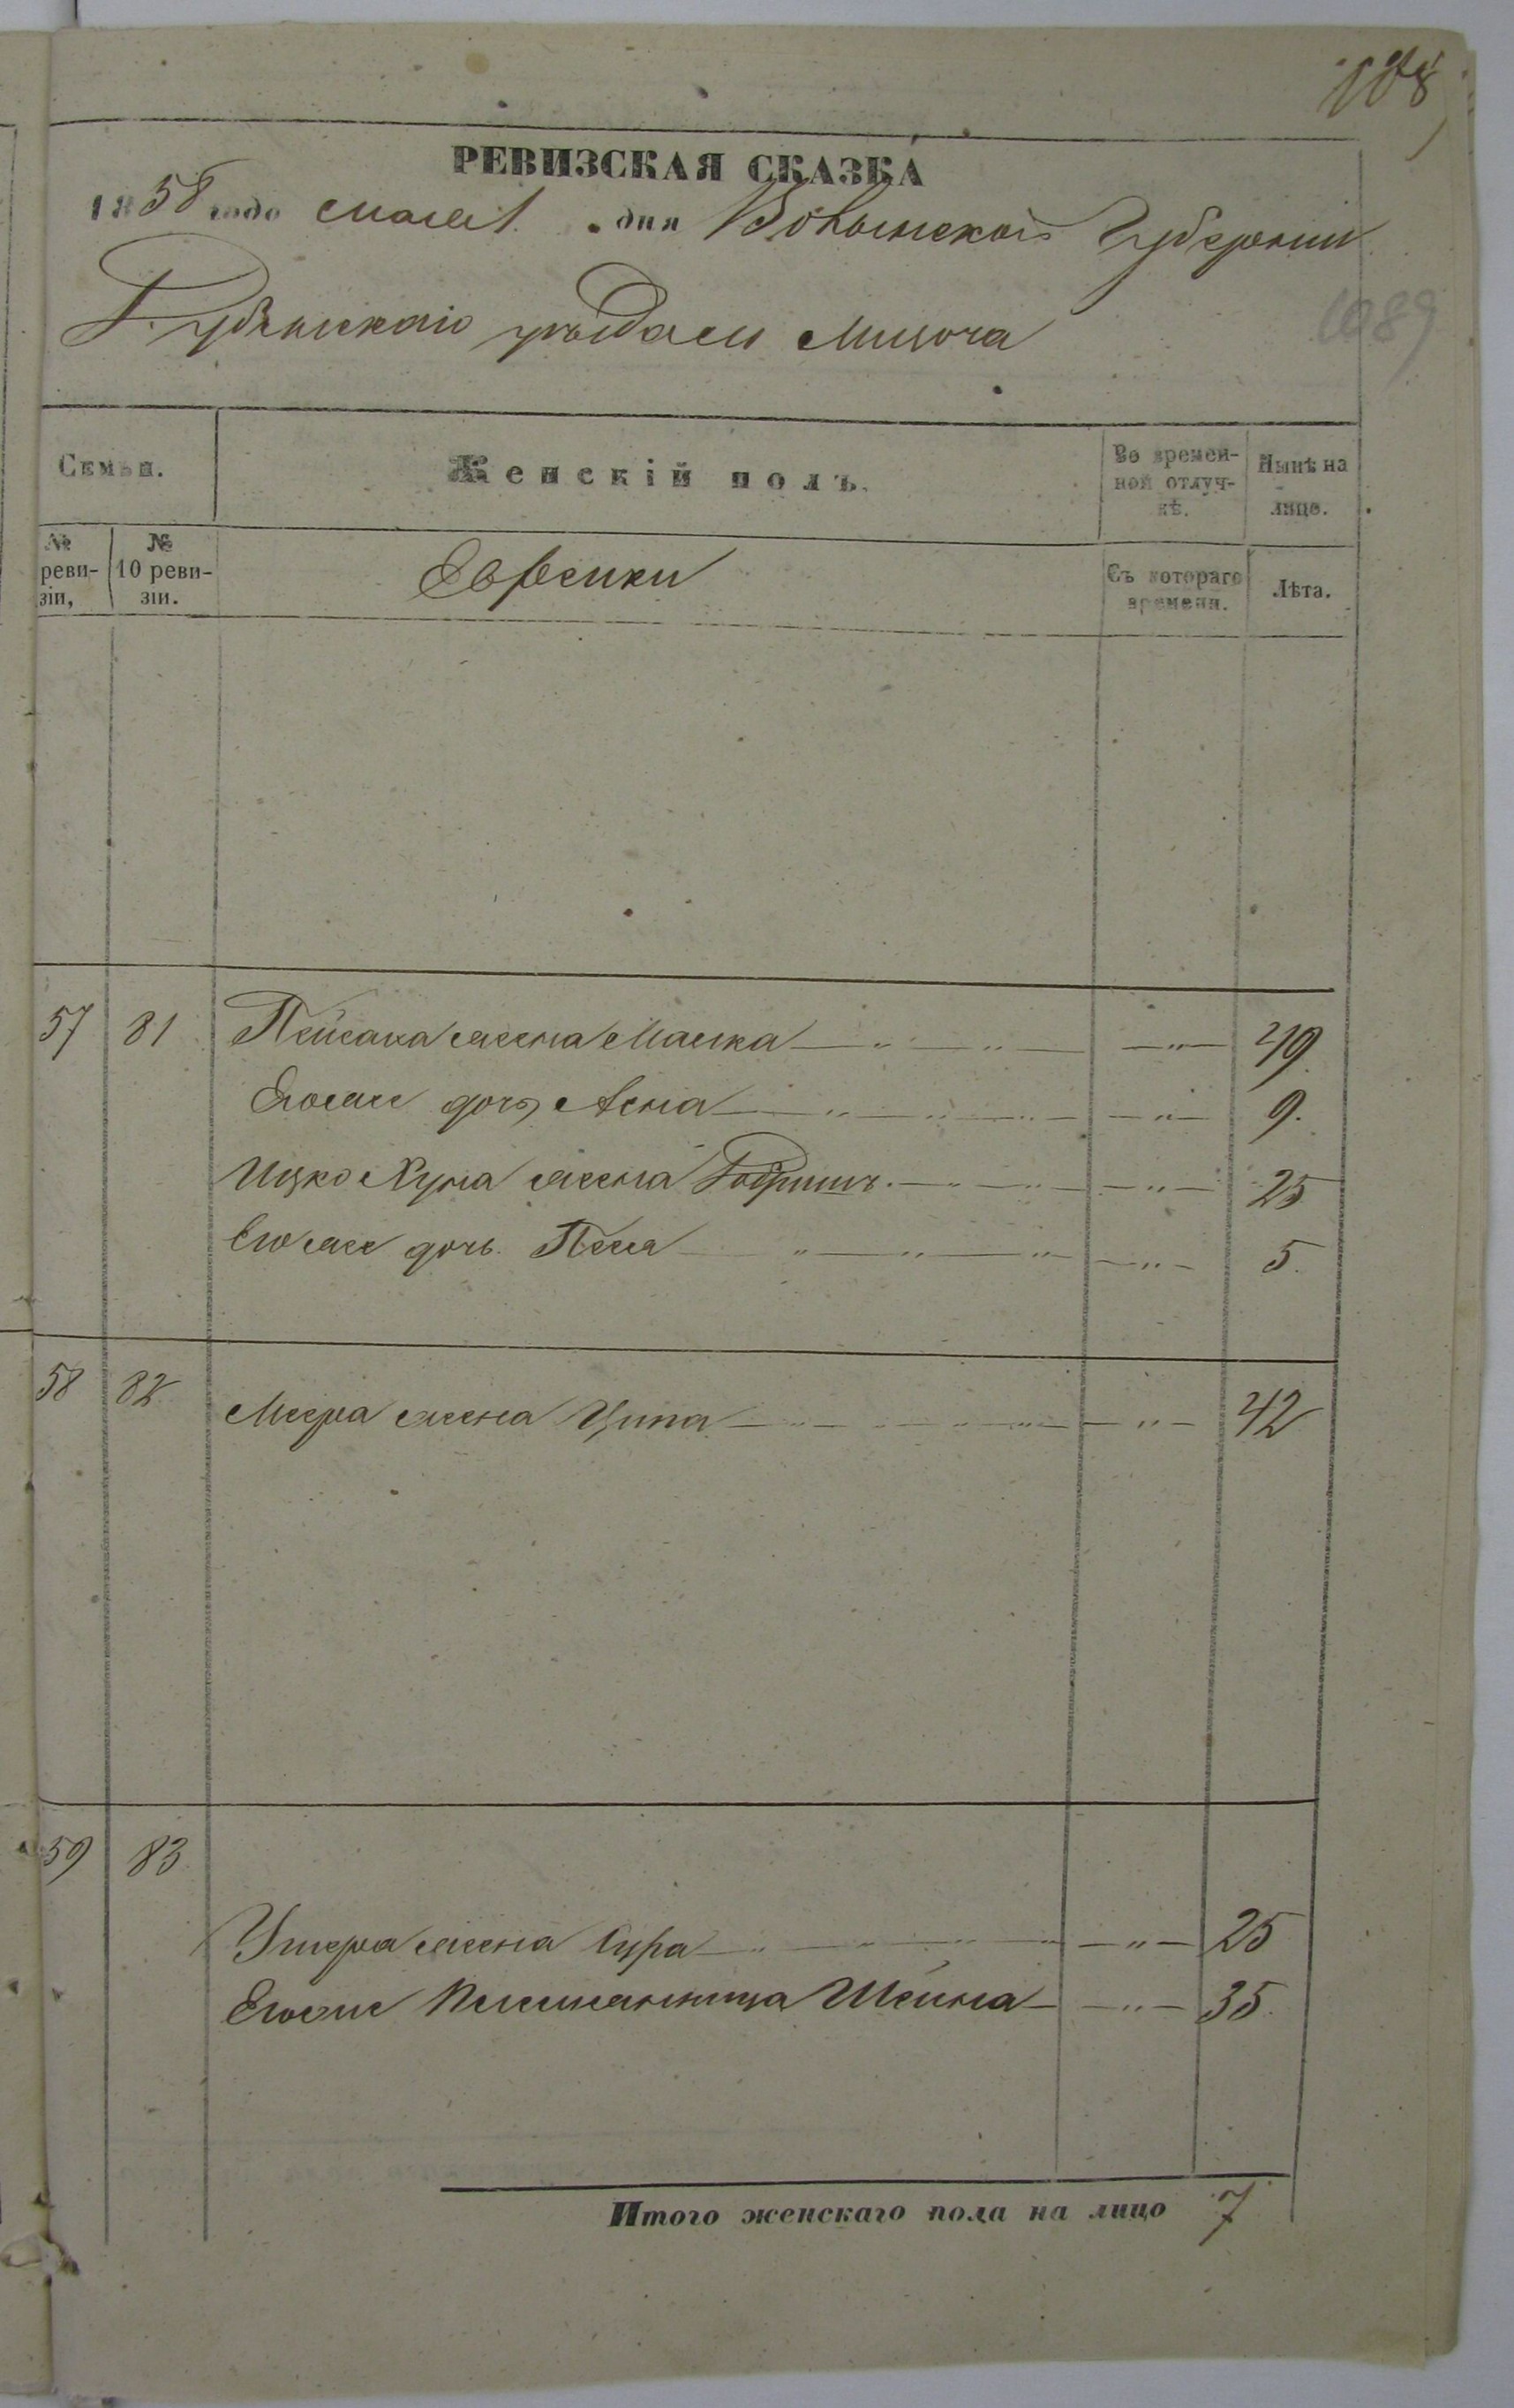 108
РЕВИЗСКАЯ СКАЗКА
1858 года мая 1 дня Волынской Губернии
Дубенскаго уѣзда м Мизоча
1089
Семьи. Женскій полъ. Во времен-ной отлуч-кѣ. Нынѣ на лицо.
№ реви-зіи, № 10 реви-зіи. Еврейки Съ котораго времени. Лѣта.
57 81 Пейсаха жена Малка — „ — „ — — „ — 49.
Егоже дочь Асна — „ — „ — „ — — „ — 9.
Ицко Хуна жена — „ — „ — — „ — 25
Егоже дочь Песя „ — „ — „ — — „ — 5.
58 82 Меера жена Ципа — „ — „ — „ — — „ — 42
59 83
Ушера жена Сура — „ — „ — „ — „ — 25
Егоже племянница Шейна — — „ — 35.
Итого женскаго пола на лицо 7